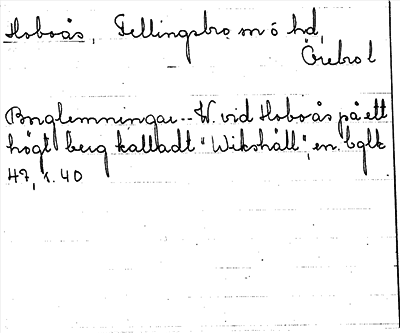 Hoboås, Fellingsbro sn ö hd,
Örebro l
Borglemningar -- W. vid Hoboås på ett
högt berg kalladt "Wikshäll", en. bglk
47, s. 40